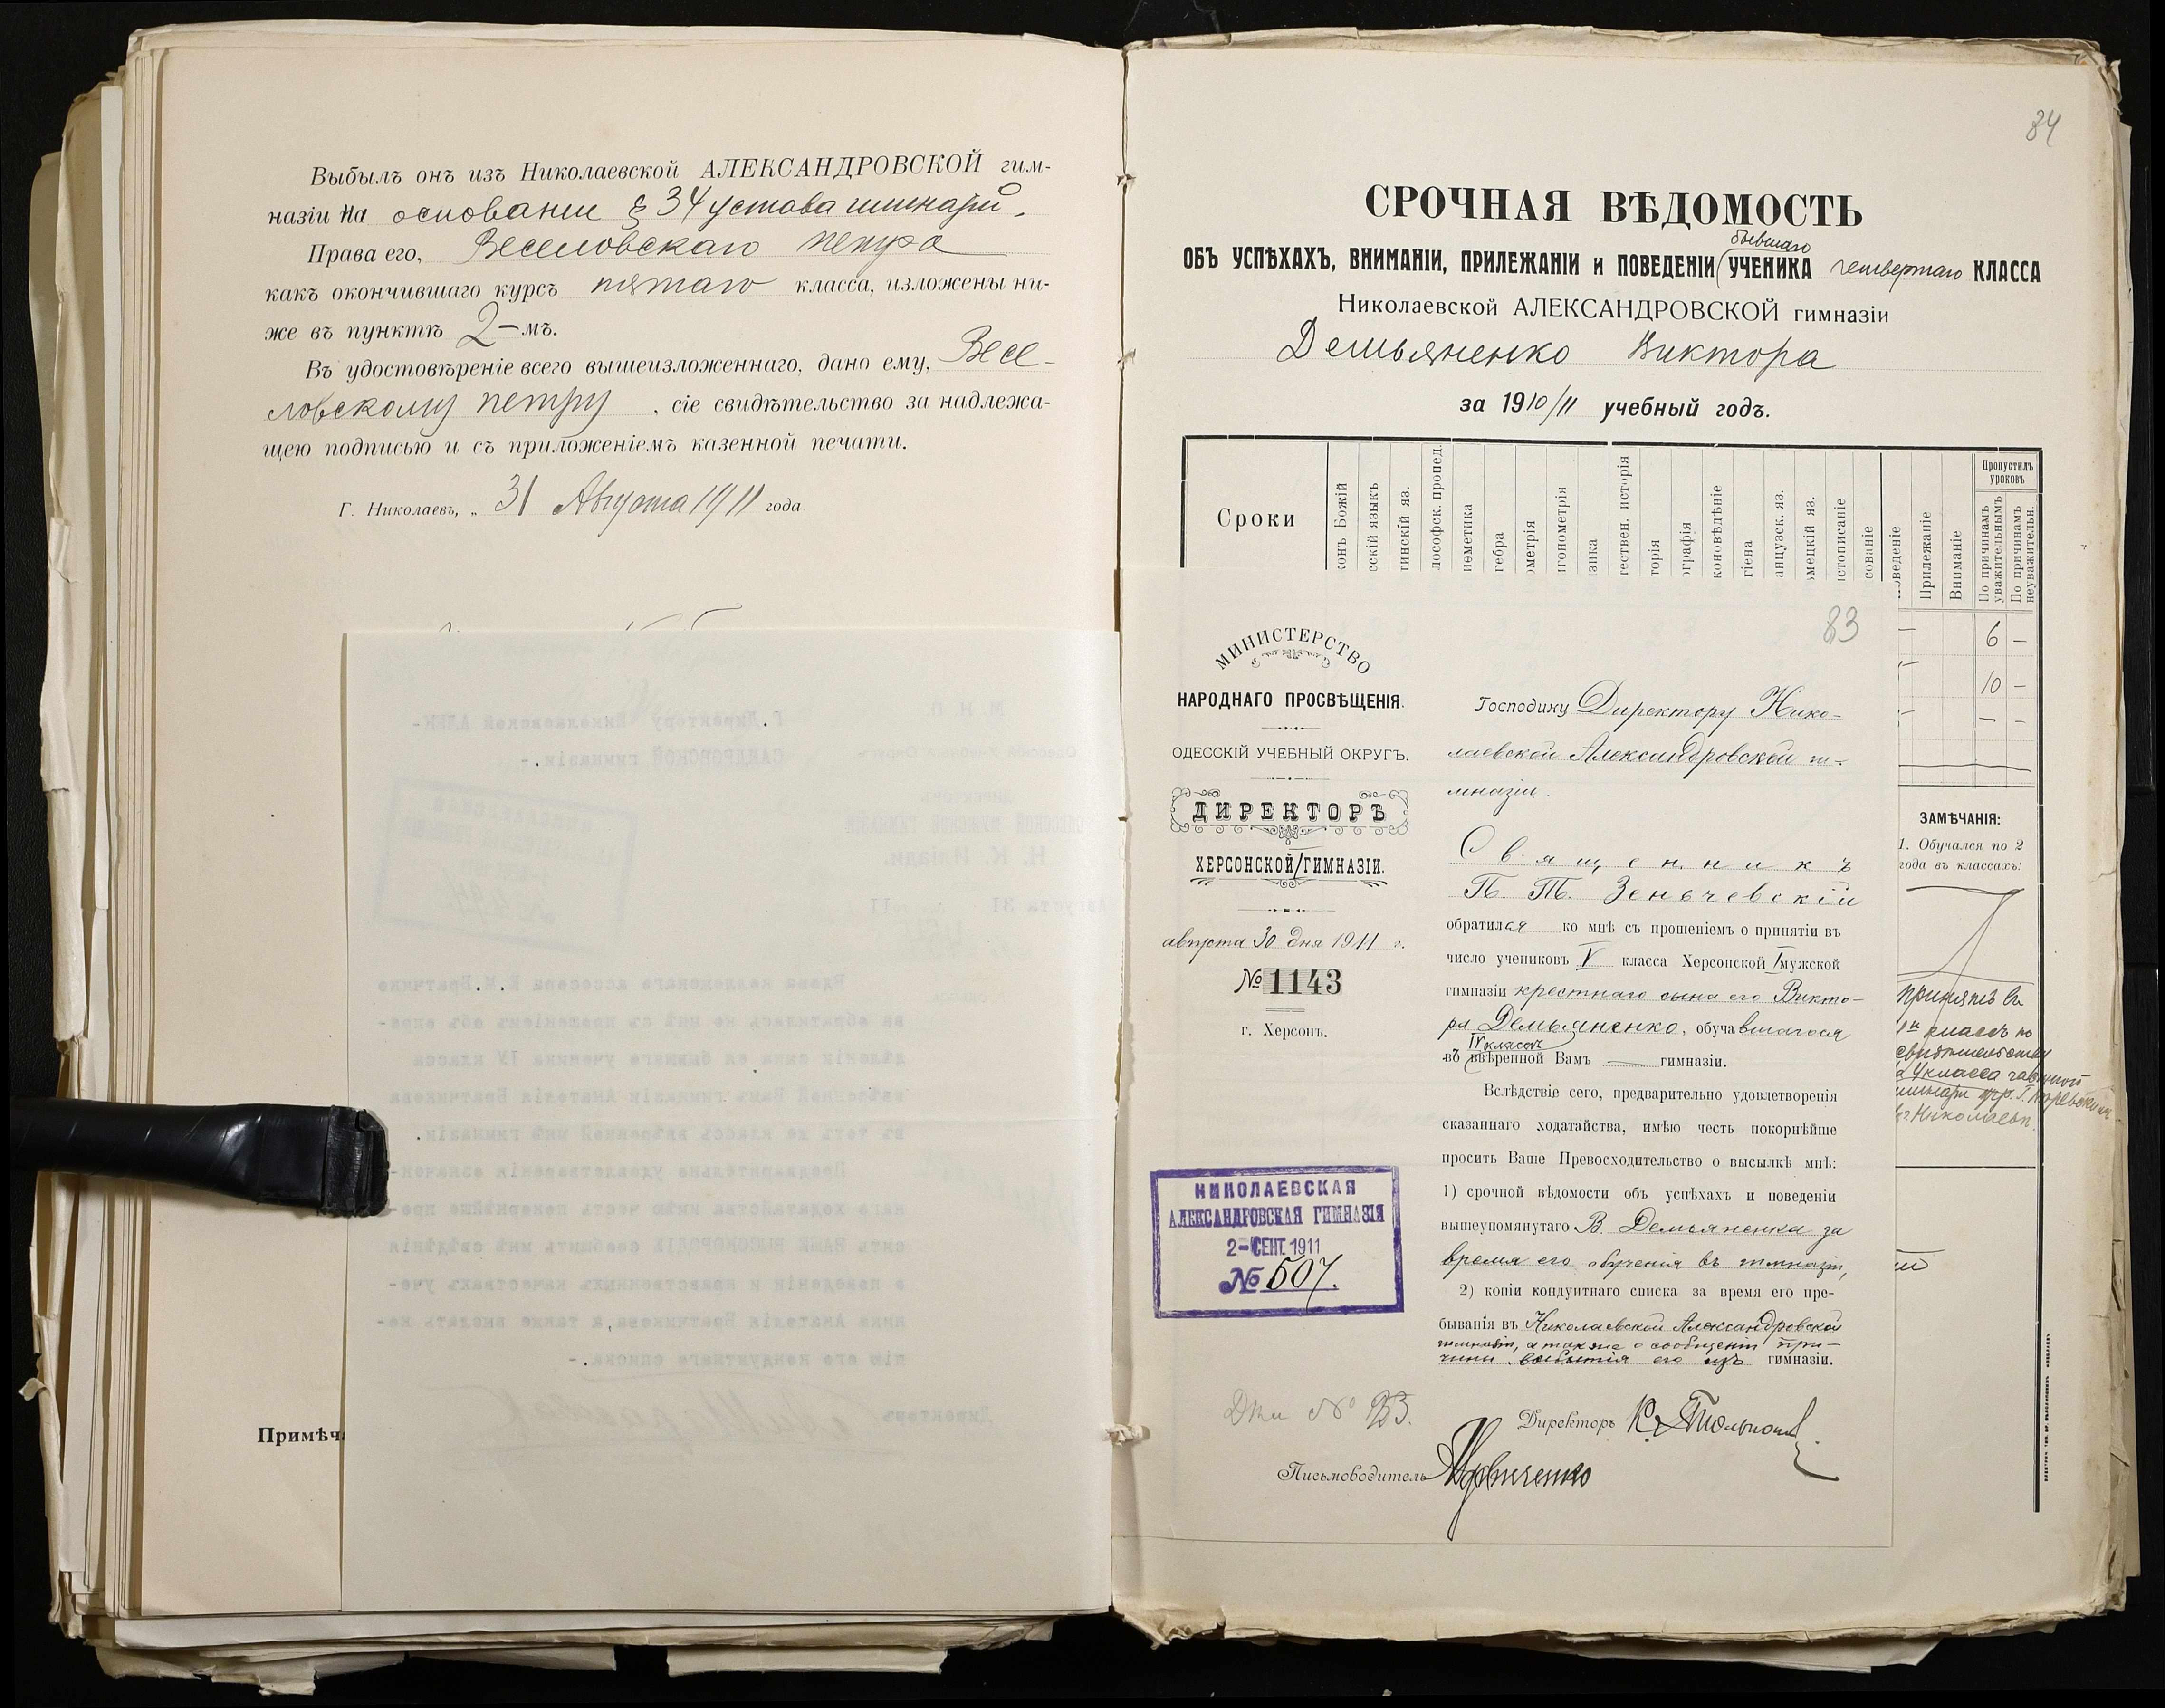 Выбылъ онъ изъ Николаевской АЛЕКСАНДРОВСКОЙ гим-
назіи на основаніи § 34 устава гимназій.
Права его, Веселовскаго Петра
какъ окончившаго курсъ пятаго класса, изложены ни-
же въ пунктѣ 2-мъ.
Въ удостовѣреніе всего вышеизложеннаго, дано ему, Весе-
ловскому Петру, сіе свидѣтельство за надлежа-
щею подписью и съ приложеніемъ казенной печати.
Г. Николаевъ, „ 31 Августа 1911 года
Примѣч
84
СРОЧНАЯ ВѢДОМОСТЬ
бывшаго
ОБЪ УСПѢХАХЪ, ВНИМАНІИ, ПРИЛЕЖАНІИ и ПОВЕДЕНІИ УЧЕНИКА четвертаго КЛАССА
Николаевской АЛЕКСАНДРОВСКОЙ гимназіи
Демьяненко Виктора
за 1910/11 учебный годъ.
Сроки
онъ Божій
сскій языкъ
тинскій яз.
лософск. пропед.
иѳметика
гебра
ометрія
игонометрія
зика
тествен. исторія
торія
ографія
коновѣдѣніе
гіена
анцузск. яз.
мецкій яз.
истописаніе
сованіе
оведеніе
Прилежаніе
Вниманіе
Пропустилъ уроковъ
По причинамъ уважительнымъ
По причинамъ неуважительн.
6 —
10 —
— —
ЗАМѢЧАНІЯ:
1. Обучался по 2
года въ классахъ:
принятъ въ
классъ по
свидѣтельству
класса
г. Николаевъ
83
МИНИСТЕРСТВО
НАРОДНАГО ПРОСВѢЩЕНІЯ.
ОДЕССКІЙ УЧЕБНЫЙ ОКРУГЪ.
ДИРЕКТОРЪ
ХЕРСОНСКОЙ I ГИМНАЗІИ.
августа 30 дня 1911 г.
№ 1143
г. Херсонъ.
Господину Директору Нико-
лаевской Александровской ги-
мназіи.
Священникъ
П. Т. Зеньчевскій
обратился ко мнѣ съ прошеніемъ о принятіи въ
число учениковъ V класса Херсонской I мужской
гимназіи крестнаго сына его Викто-
ра Демьяненко, обучавшагося
IV классѣ
въ ввѣренной Вамъ — гимназіи.
Вслѣдствіе сего, предварительно удовлетворенія
сказаннаго ходатайства, имѣю честь покорнѣйше
просить Ваше Превосходительство о высылкѣ мнѣ:
1) срочной вѣдомости объ успѣхахъ и поведеніи
вышеупомянутаго В. Демьяненка за
время его обученія въ гимназіи,
2) копіи кондуитнаго списка за время его пре-
быванія въ Николаевской Александровской
гимназіи, а также о сообщеніи при-
чины выбытія его изъ гимназіи.
НИКОЛАЕВСКАЯ
АЛЕКСАНДРОВСКАЯ ГИМНАЗІЯ
2 - СЕНТ. 1911
№ 507.
Директоръ
Письмоводитель